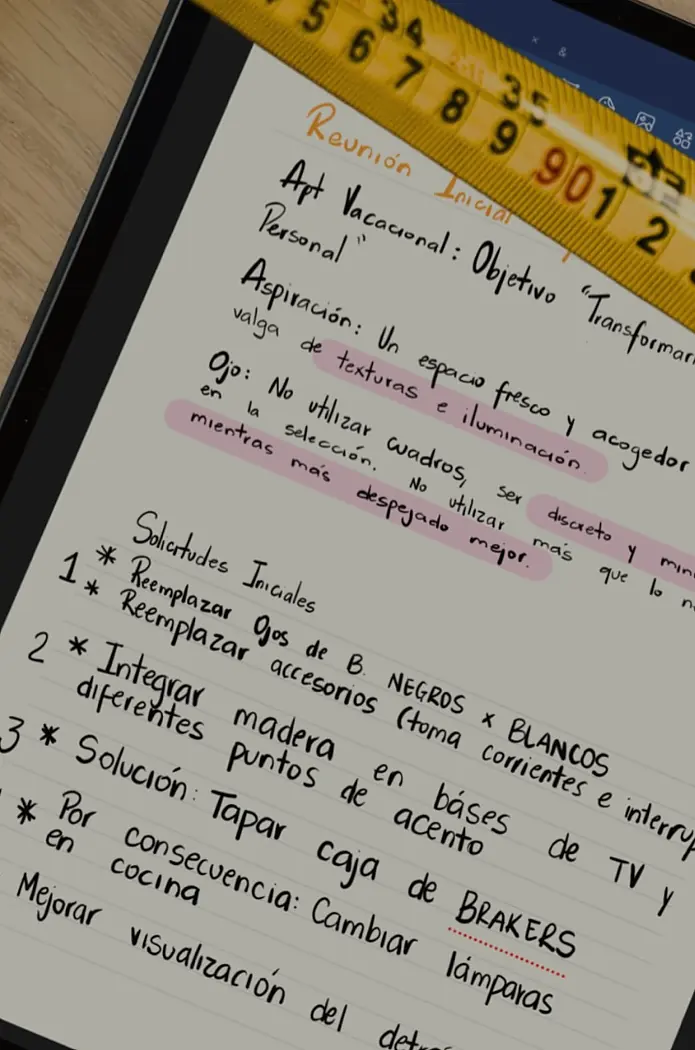 5 6 7 8 9 90 1 2
34 35
Reunión Inicial
Apt Vacacional: Objetivo "Transformar
Personal"
Aspiración: Un espacio fresco y acogedor
valga de texturas e iluminación.
Ojo: No utilizar cuadros, ser discreto y
en la selección. No utilizar más que lo
mientras más despejado mejor.
Solicitudes Iniciales
1 * Reemplazar Ojos de B. NEGROS x BLANCOS
* Reemplazar accesorios (toma corrientes e
2 * Integrar madera en báses de TV y
diferentes puntos de acento
3 * Solución: Tapar caja de BRAKERS
* Por consecuencia: Cambiar lámparas
en cocina
Mejorar visualización del